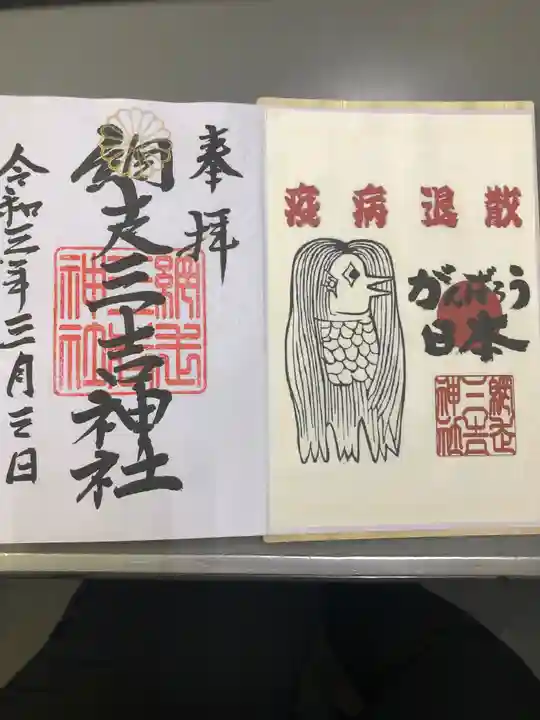 奉拝
網走三吉神社
網走三吉神社
令和三年三月三日
疫病退散
がんばろう
日本
網走三吉神社